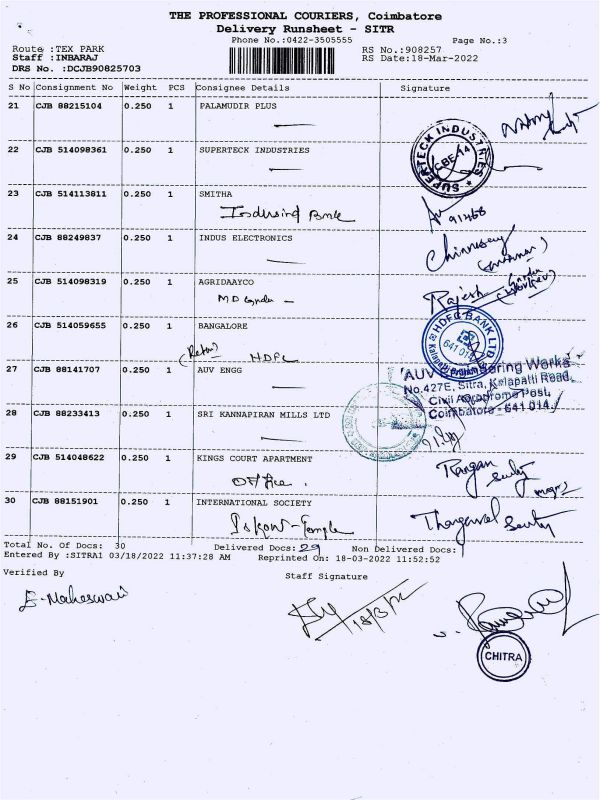 THE PROFESSIONAL COURIERS, Coimbatore
Delivery Runsheet - SITR
Phone No.:0422-3505555
Page No.:3
Route :TEX PARK
RS No.:908257
Staff :INBARAJ
RS Date:18-Mar-2022
DRS No. :DCJB90825703
S No Consignment No Weight PCS Consignee Details Signature
21 CJB 88215104 0.250 1 PALAMUDIR PLUS
22 CJB 514098361 0.250 1 SUPERTECK INDUSTRIES
SUPERTECK INDUSTRIES
CBE-14
23 CJB 514113811 0.250 1 SMITHA
Indusind Bank
24 CJB 88249837 0.250 1 INDUS ELECTRONICS
25 CJB 514098319 0.250 1 AGRIDAAYCO
Rajesh
26 CJB 514059655 0.250 1 BANGALORE
HDFC
HDFC BANK LTD
27 CJB 88141707 0.250 1 AUV ENGG
AUV Engineering Works
No.427E, Sitra, Kalapatti Road,
Civil Aerodrome Post,
Coimbatore - 641 014.
28 CJB 88233413 0.250 1 SRI KANNAPIRAN MILLS LTD
29 CJB 514048622 0.250 1 KINGS COURT APARTMENT
Office.
Rangan
30 CJB 88151901 0.250 1 INTERNATIONAL SOCIETY
Iskon-Temple
Thangavel
Total No. Of Docs: 30 Delivered Docs: 29 Non Delivered Docs: 1
Entered By :SITRA1 03/18/2022 11:37:28 AM Reprinted On: 18-03-2022 11:52:52
Verified By
Staff Signature
E. Maheswari
18/3/22
CHITRA